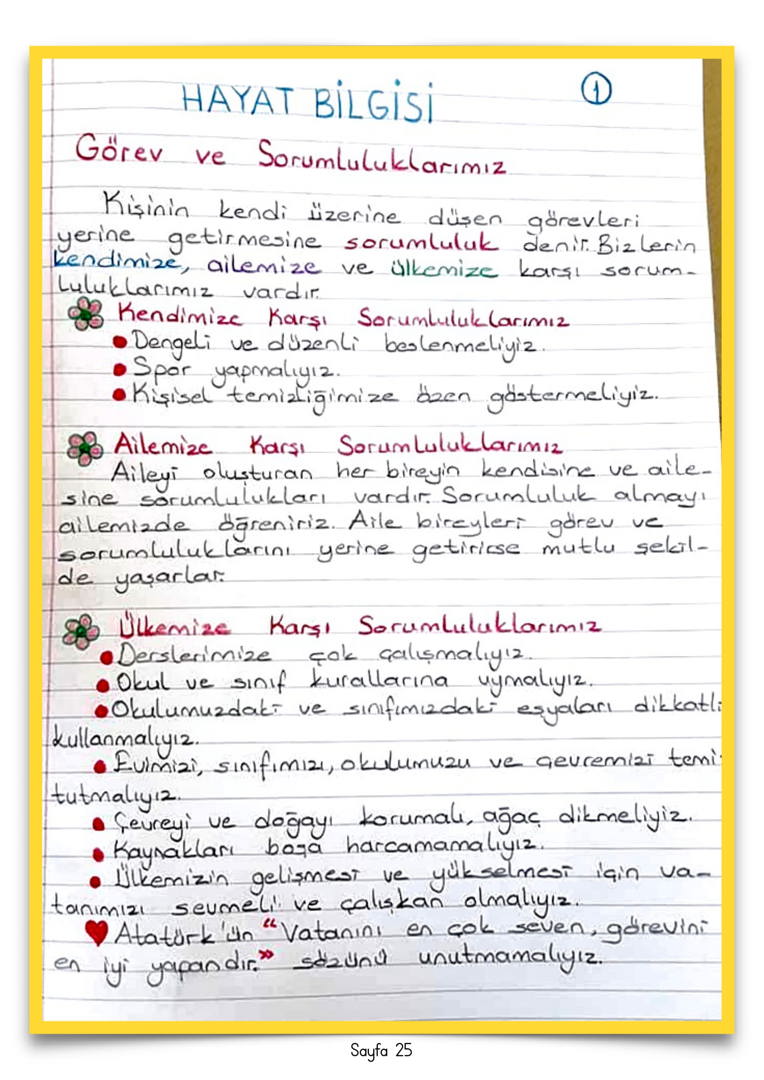 HAYAT BİLGİSİ
1
Görev ve Sorumluluklarımız
Kişinin kendi üzerine düşen görevleri
yerine getirmesine sorumluluk denir. Bizlerin
kendimize, ailemize ve ülkemize karşı sorum-
luluklarımız vardır.
Kendimize Karşı Sorumluluklarımız
Dengeli ve düzenli beslenmeliyiz.
Spor yapmalıyız.
Kişisel temizliğimize özen göstermeliyiz.
Ailemize Karşı Sorumluluklarımız
Aileyi oluşturan her bireyin kendisine ve aile-
sine sorumlulukları vardır. Sorumluluk almayı
ailemizde öğreniriz. Aile bireyleri görev ve
sorumluluklarını yerine getirirse mutlu şekil-
de yaşarlar.
Ülkemize Karşı Sorumluluklarımız
Derslerimize çok çalışmalıyız.
Okul ve sınıf kurallarına uymalıyız.
Okulumuzdaki ve sınıfımızdaki eşyaları dikkatli
kullanmalıyız.
Evimizi, sınıfımızı, okulumuzu ve çevremizi temi
tutmalıyız.
Çevreyi ve doğayı korumalı, ağaç dikmeliyiz.
Kaynakları boşa harcamamalıyız.
Ülkemizin gelişmesi ve yükselmesi için va-
tanımızı sevmeli ve çalışkan olmalıyız.
Atatürk'ün "Vatanını en çok seven, görevini
en iyi yapandır." sözünü unutmamalıyız.
Sayfa 25